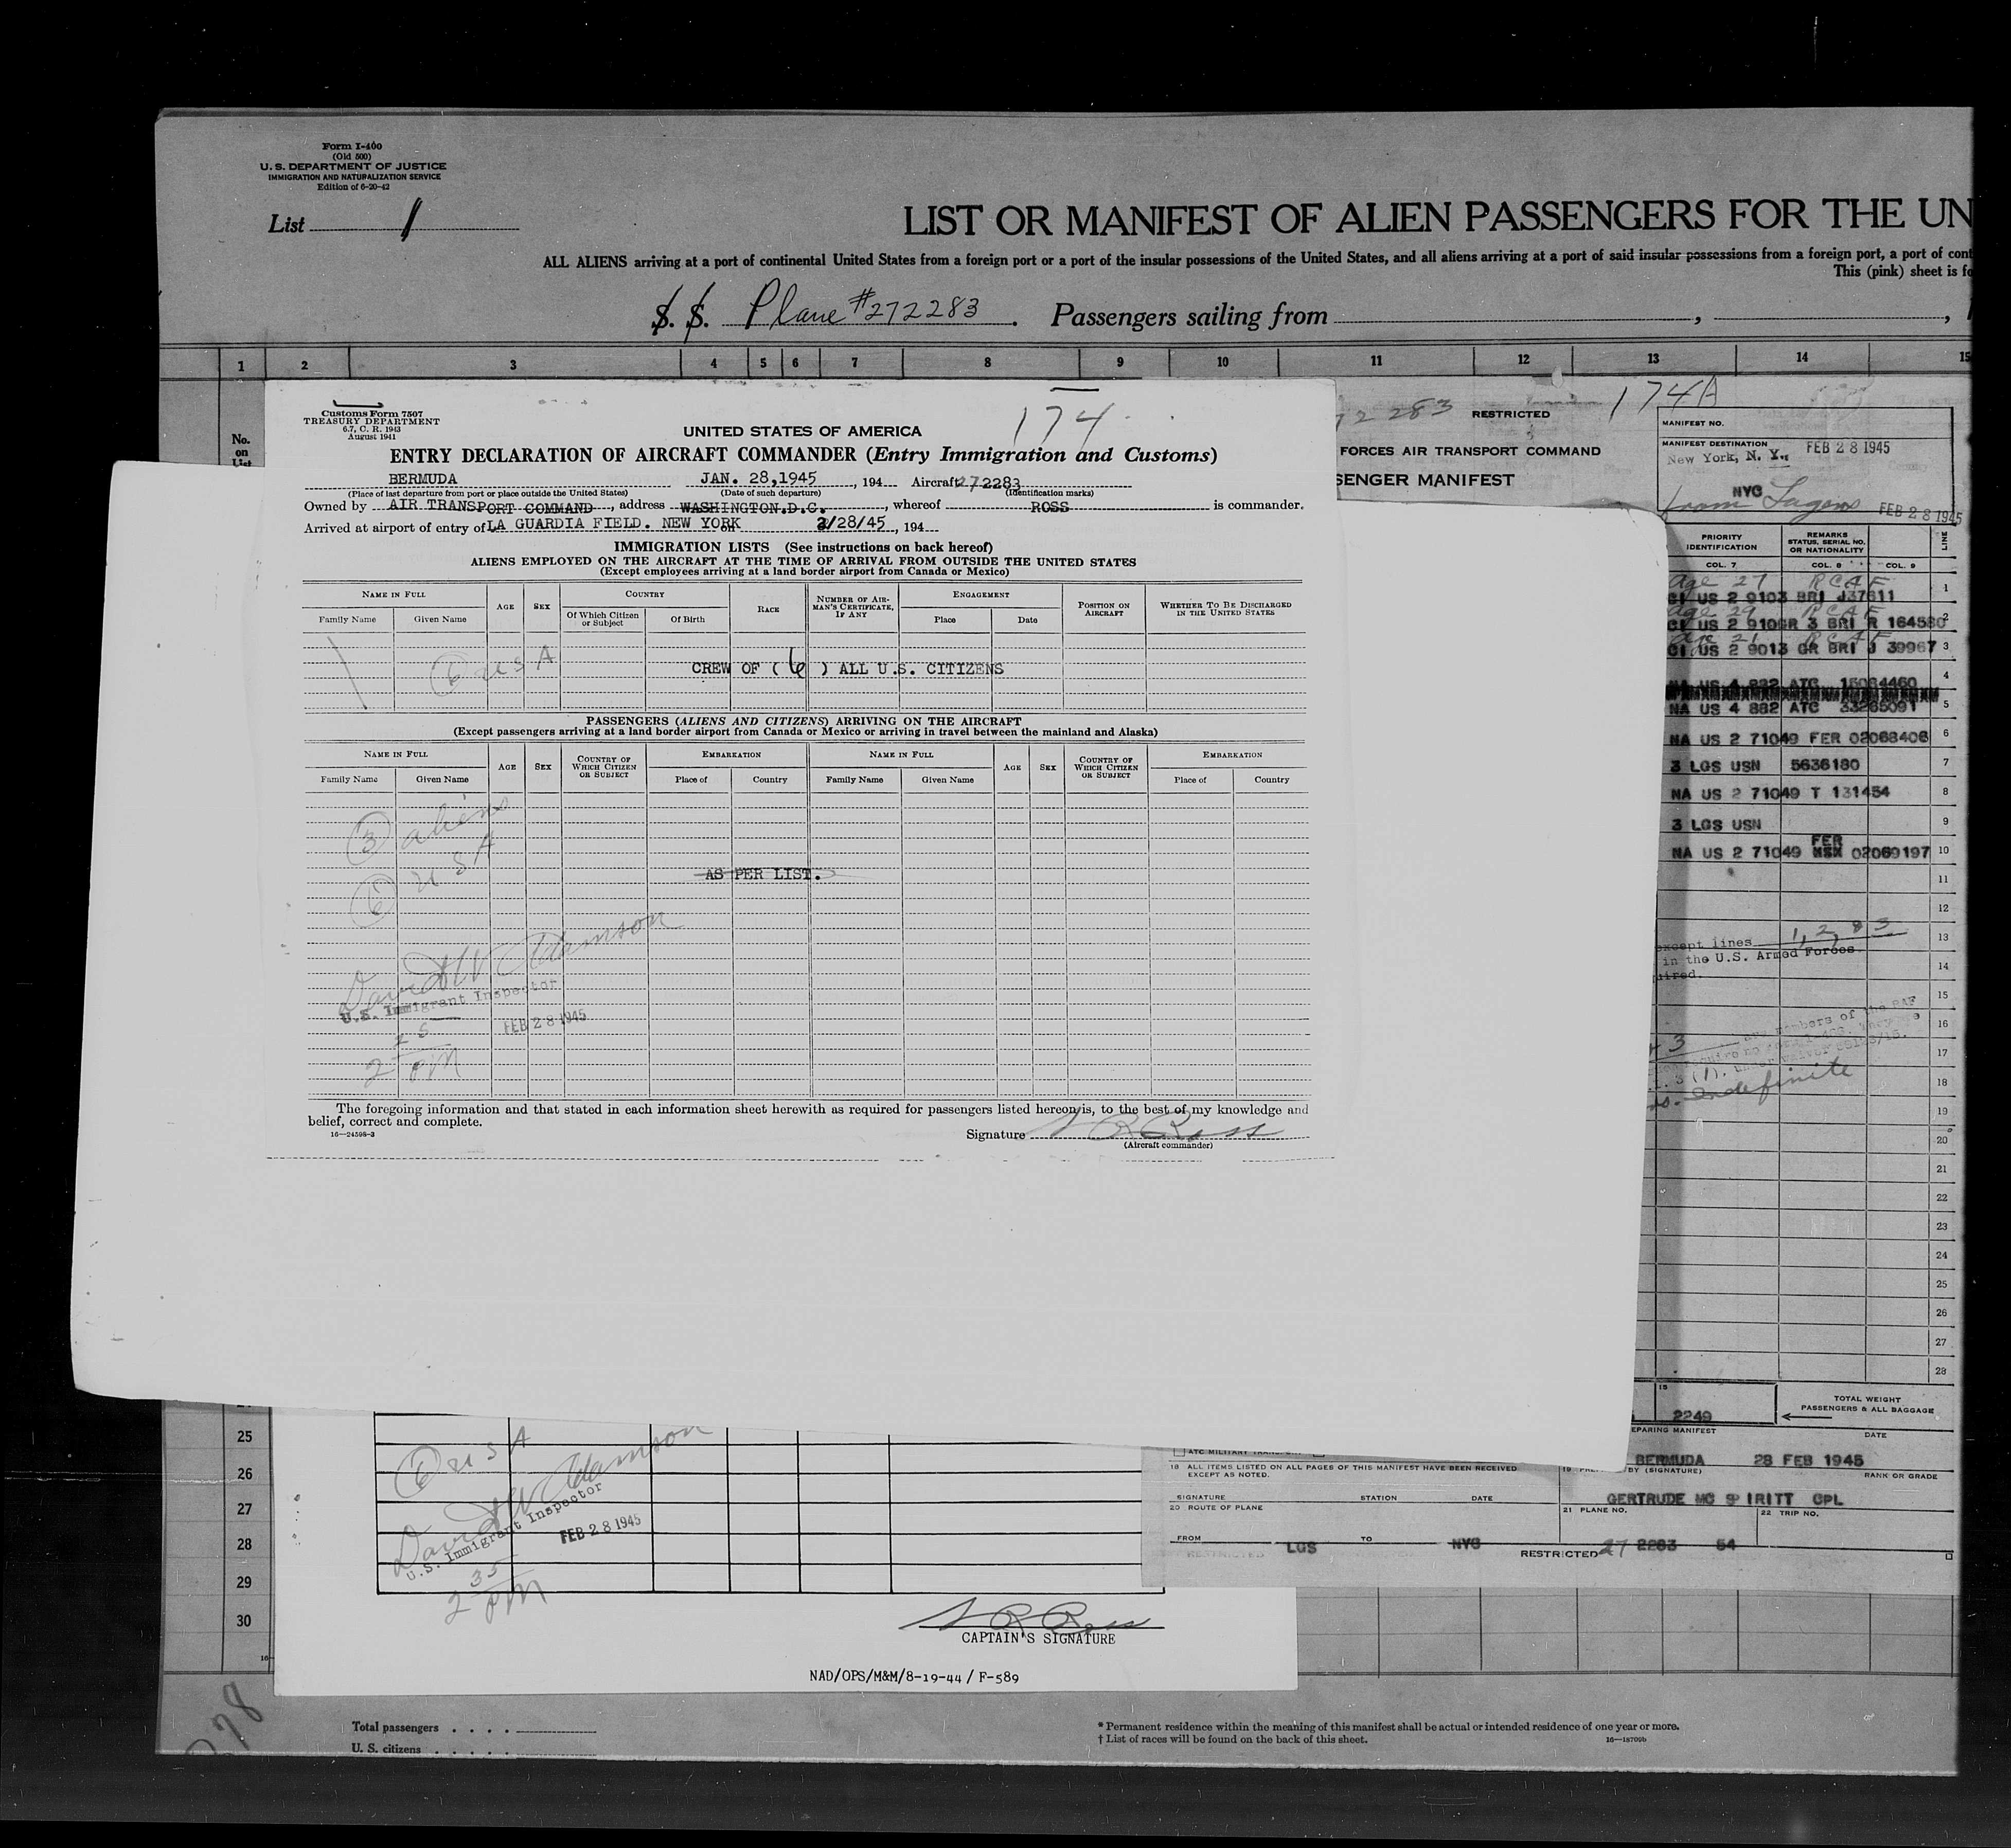 Form I-400
(Old 500)
U. S. DEPARTMENT OF JUSTICE
IMMIGRATION AND NATURALIZATION SERVICE
Edition of 6-20-42
List 1
LIST OR MANIFEST OF ALIEN PASSENGERS FOR THE UN
ALL ALIENS arriving at a port of continental United States from a foreign port or a port of the insular possessions of the United States, and all aliens arriving at a port of said insular possessions from a foreign port, a port of cont
This (pink) sheet is fo
S. S. Plane #272283. Passengers sailing from , ,
1 2 3 4 5 6 7 8 9 10 11 12 13 14 15
No.
on
List
Customs Form 7507
TREASURY DEPARTMENT
6.7, C. R. 1943
August 1941
174
UNITED STATES OF AMERICA
ENTRY DECLARATION OF AIRCRAFT COMMANDER (Entry Immigration and Customs)
BERMUDA JAN. 28,1945, 194 Aircraft 272283
(Place of last departure from port or place outside the United States) (Date of such departure) (Identification marks)
Owned by AIR TRANSPORT COMMAND, address WASHINGTON.D.C., whereof ROSS is commander.
Arrived at airport of entry of LA GUARDIA FIELD. NEW YORK 2/28/45, 194
on
IMMIGRATION LISTS (See instructions on back hereof)
ALIENS EMPLOYED ON THE AIRCRAFT AT THE TIME OF ARRIVAL FROM OUTSIDE THE UNITED STATES
(Except employees arriving at a land border airport from Canada or Mexico)
NAME IN FULL AGE SEX COUNTRY RACE NUMBER OF AIRMAN'S CERTIFICATE, IF ANY ENGAGEMENT POSITION ON AIRCRAFT WHETHER TO BE DISCHARGED IN THE UNITED STATES
Family Name Given Name Of Which Citizen or Subject Of Birth Place Date
6 USA
CREW OF ( 6 ) ALL U.S. CITIZENS
PASSENGERS (ALIENS AND CITIZENS) ARRIVING ON THE AIRCRAFT
(Except passengers arriving at a land border airport from Canada or Mexico or arriving in travel between the mainland and Alaska)
NAME IN FULL AGE SEX COUNTRY OF WHICH CITIZEN OR SUBJECT EMBARKATION NAME IN FULL AGE SEX COUNTRY OF WHICH CITIZEN OR SUBJECT EMBARKATION
Family Name Given Name Place of Country Family Name Given Name Place of Country
3 aliens
6 USA
AS PER LIST.
David W Adamson
U.S. Immigrant Inspector
FEB 28 1945
2 PM
The foregoing information and that stated in each information sheet herewith as required for passengers listed hereon is, to the best of my knowledge and
belief, correct and complete.
16—24598-3
Signature R Ross
(Aircraft commander)
72 283 RESTRICTED 174A
FORCES AIR TRANSPORT COMMAND
SENGER MANIFEST
MANIFEST NO.
MANIFEST DESTINATION FEB 28 1945
New York, N. Y.
NYC
from Lagens FEB 28 1945
PRIORITY IDENTIFICATION REMARKS STATUS, SERIAL NO. OR NATIONALITY LINE
COL. 7 COL. 8 COL. 9
Age 27 RCAF
CI US 2 9103 BRI J37611 1
Age 29 RCAF
CI US 2 910GR 3 BRI R 164580 2
Age 21 RCAF
CI US 2 9013 GR BRI J 39967 3
NA US 4 882 ATC 15084460 4
NA US 4 882 ATC 33265091 5
NA US 2 71049 FER 02068406 6
3 LGS USN 5636180 7
NA US 2 71049 T 131454 8
3 LGS USN 9
FER
NA US 2 71049 02069197 10
11
12
except lines 1, 2, & 3 13
in the U.S. Armed Forces
14
15
members of the RAF
16
3
17
Indefinite 18
19
20
21
22
23
24
25
26
27
28
2249 TOTAL WEIGHT
PASSENGERS & ALL BAGGAGE
EPARING MANIFEST DATE
BERMUDA 28 FEB 1945
BY (SIGNATURE) RANK OR GRADE
GERTRUDE MC SPIRITT CPL
ATC MILITARY TRANSPORT
18 ALL ITEMS LISTED ON ALL PAGES OF THIS MANIFEST HAVE BEEN RECEIVED
EXCEPT AS NOTED.
SIGNATURE STATION DATE
20 ROUTE OF PLANE 21 PLANE NO. 22 TRIP NO.
FROM LGS TO NYC 27 2283 54
RESTRICTED
25
26
27
28
29
30
6 USA
David W Adamson
U.S. Immigrant Inspector
FEB 28 1945
2 35 PM
R Ross
CAPTAIN'S SIGNATURE
NAD/OPS/M&M/8-19-44 / F-589
Total passengers . . . .
U. S. citizens . . . . .
* Permanent residence within the meaning of this manifest shall be actual or intended residence of one year or more.
† List of races will be found on the back of this sheet.
16—18709b